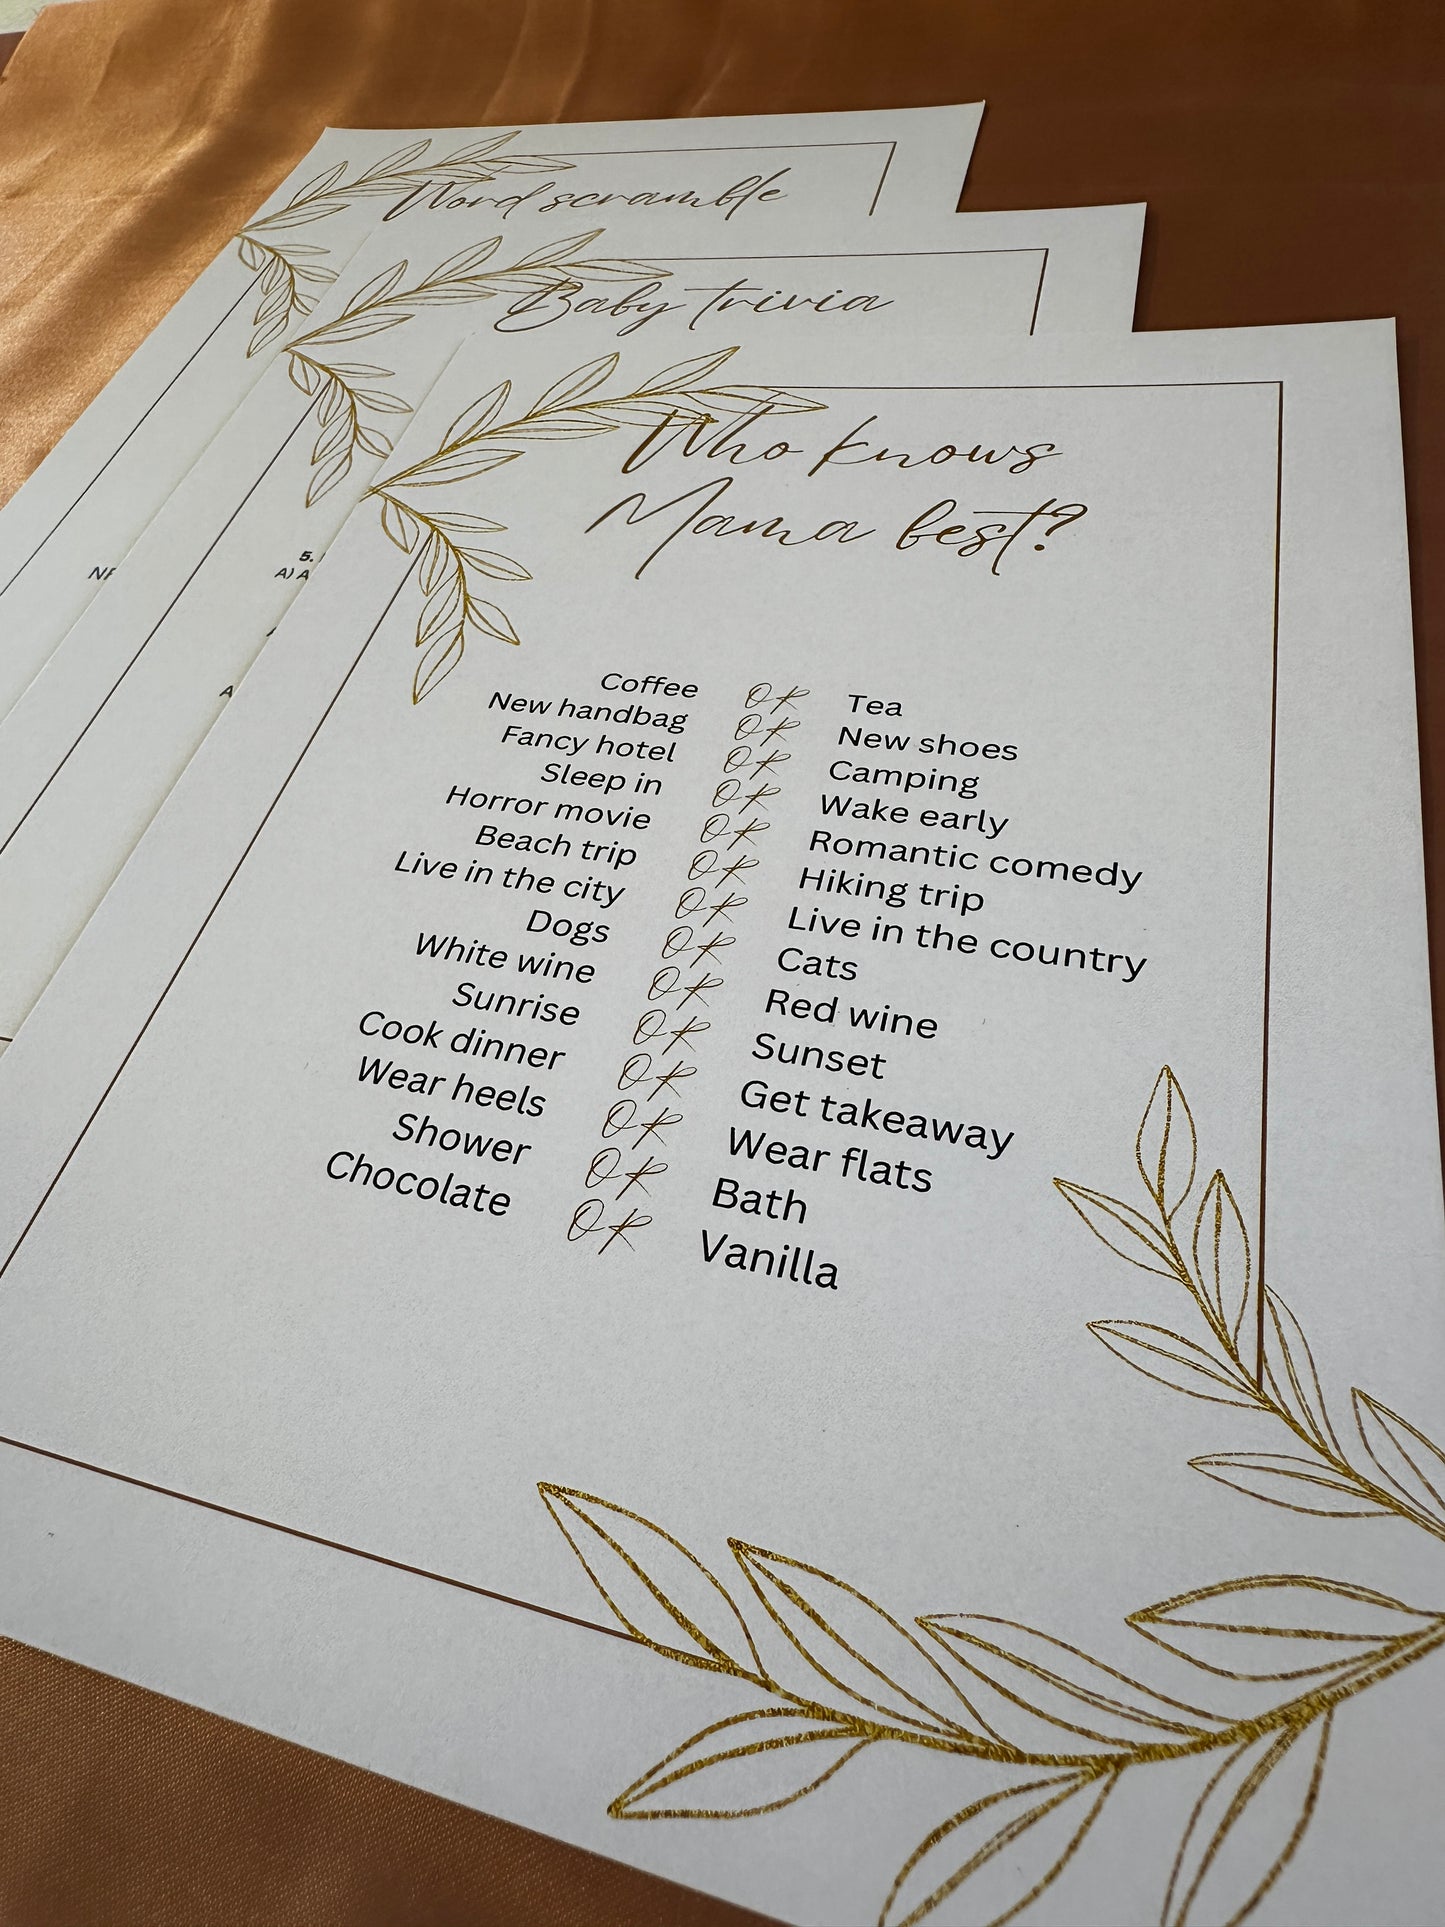 Word scramble
Baby trivia
Who knows
Mama best?
5.
A) A
A
Coffee OR Tea
New handbag OR New shoes
Fancy hotel OR Camping
Sleep in OR Wake early
Horror movie OR Romantic comedy
Beach trip OR Hiking trip
Live in the city OR Live in the country
Dogs OR Cats
White wine OR Red wine
Sunrise OR Sunset
Cook dinner OR Get takeaway
Wear heels OR Wear flats
Shower OR Bath
Chocolate OR Vanilla